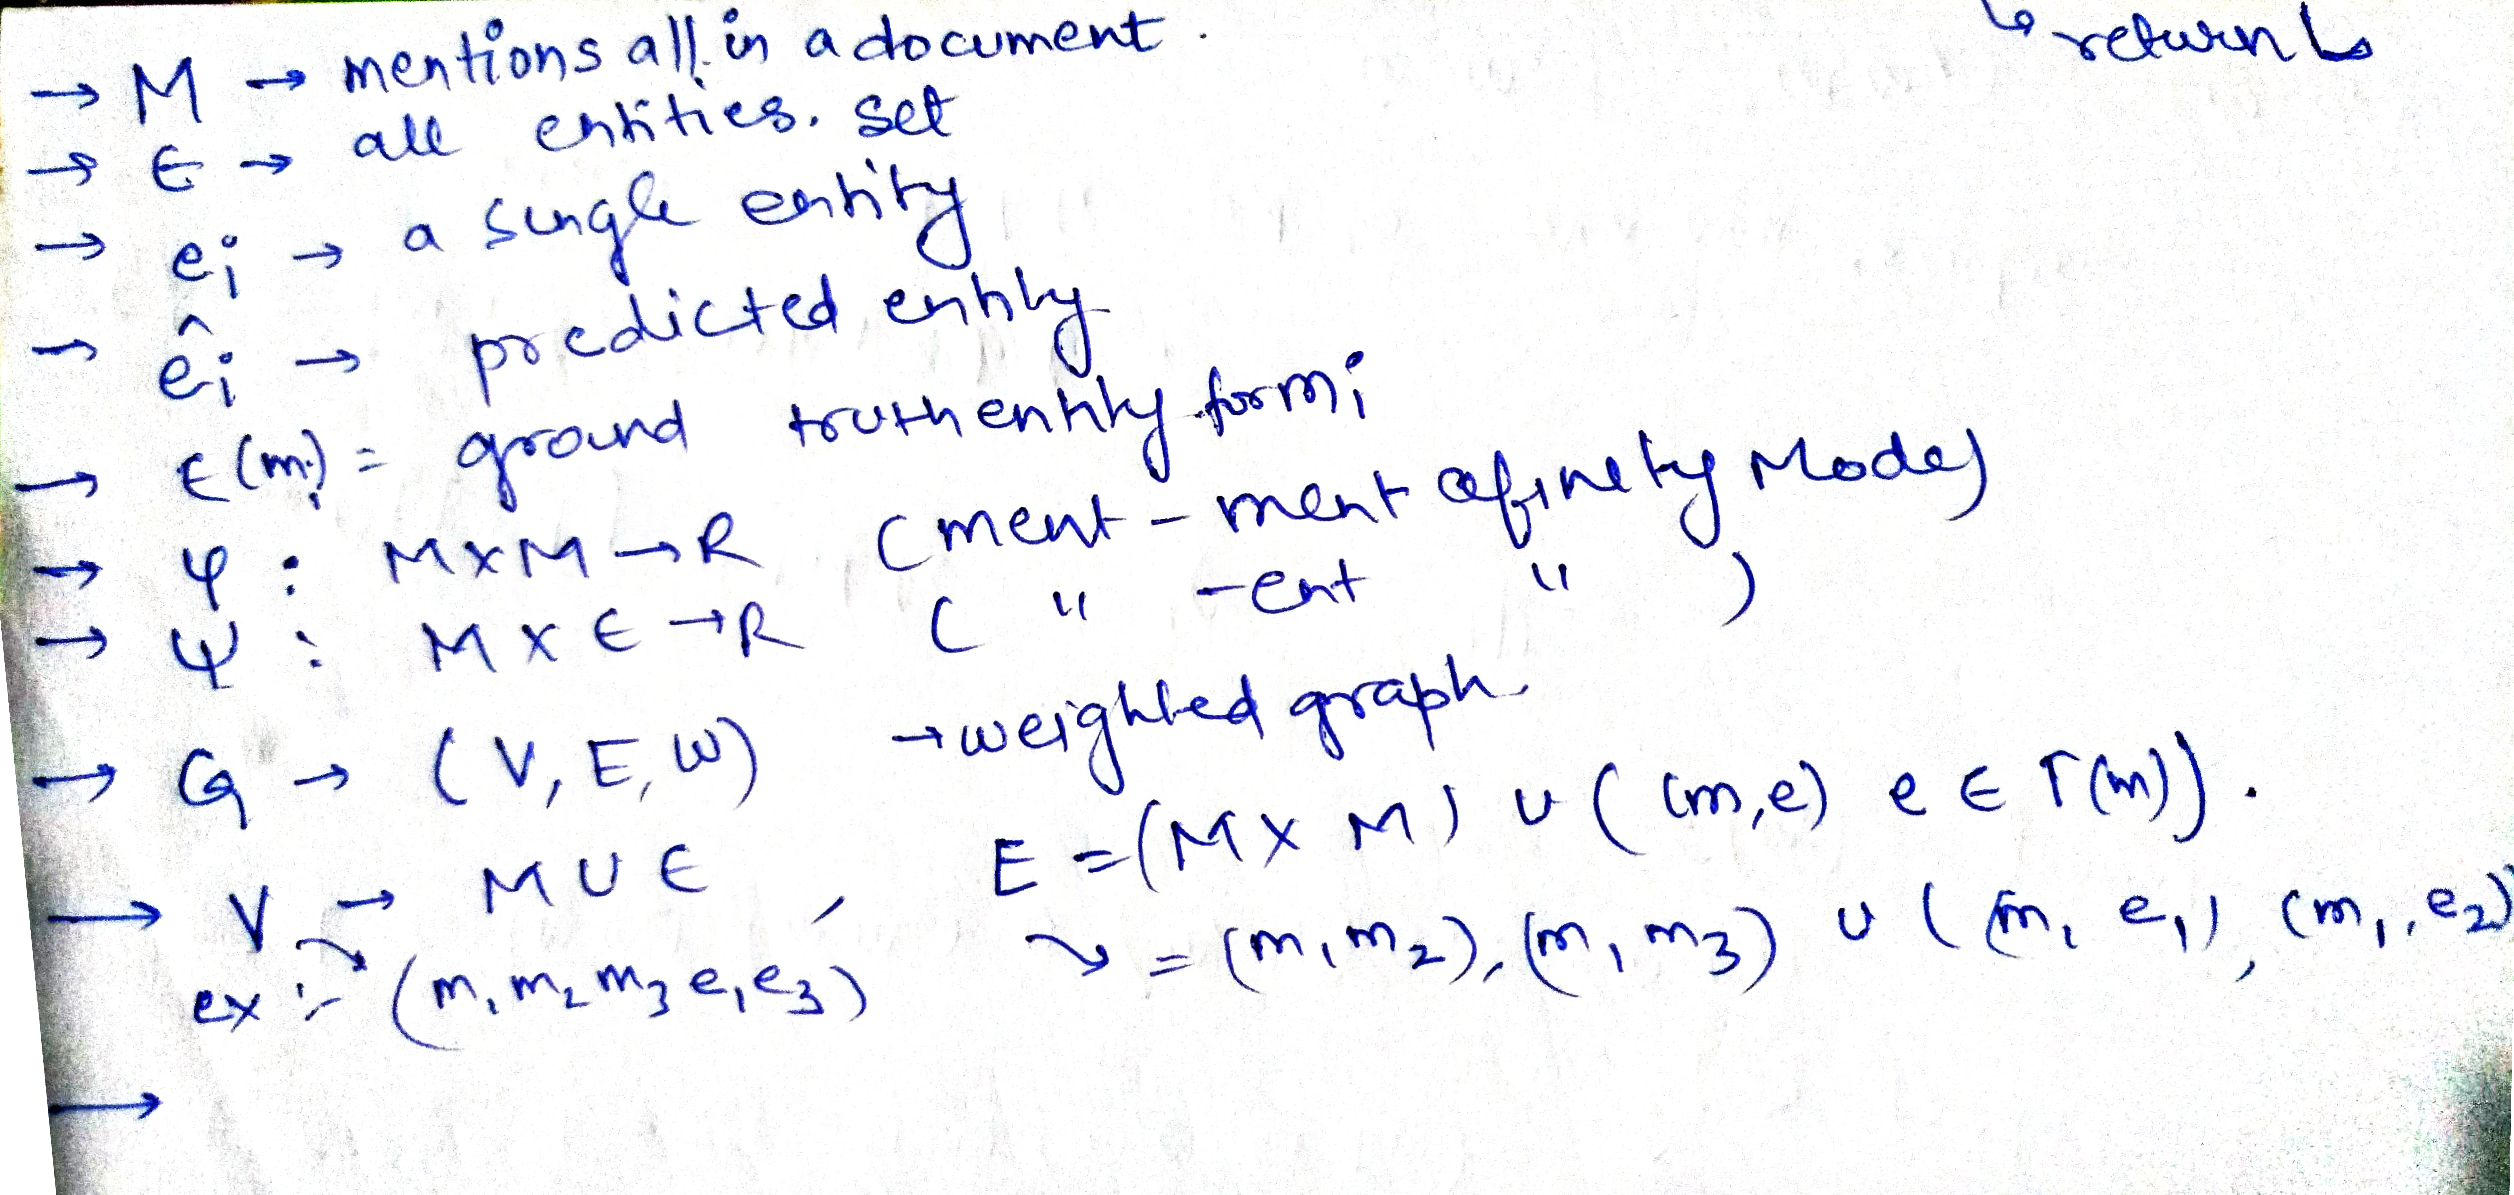 ↳ return ↳
→ M → mentions all in a document.
→ E → all entities. set
→ eᵢ → a single entity
→ êᵢ → predicted entity
→ E(mᵢ) = ground truth entity for mᵢ
→ φ : M×M → R (ment - ment affinety Model)
→ ψ : M × E → R ( " - ent " )
→ G → (V, E, W) → weighted graph.
→ V → M U E , E = (M × M) ∪ ( (m,e) e ∈ Γ(m)).
ex :- (m₁ m₂ m₃ e₁ e₃) ↘ = (m₁ m₂), (m₁ m₃) ∪ ( (m₁ e₁), (m₁, e₂)
→